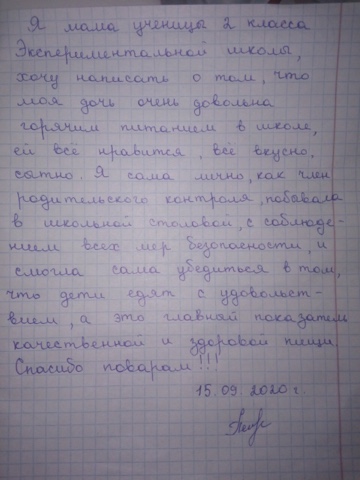 Я мама ученицы 2 класса
Экспериментальной школы,
хочу написать о том, что
моя дочь очень довольна
горячим питанием в школе,
ей всё нравится, всё вкусно,
сытно. Я сама лично, как член
родительского контроля, побывала
в школьной столовой, с соблюде-
нием всех мер безопасности, и
смогла сама убедиться в том,
что дети едят с удовольст-
вием, а это главный показатель
качественной и здоровой пищи.
Спасибо поварам!!!
15.09.2020 г.